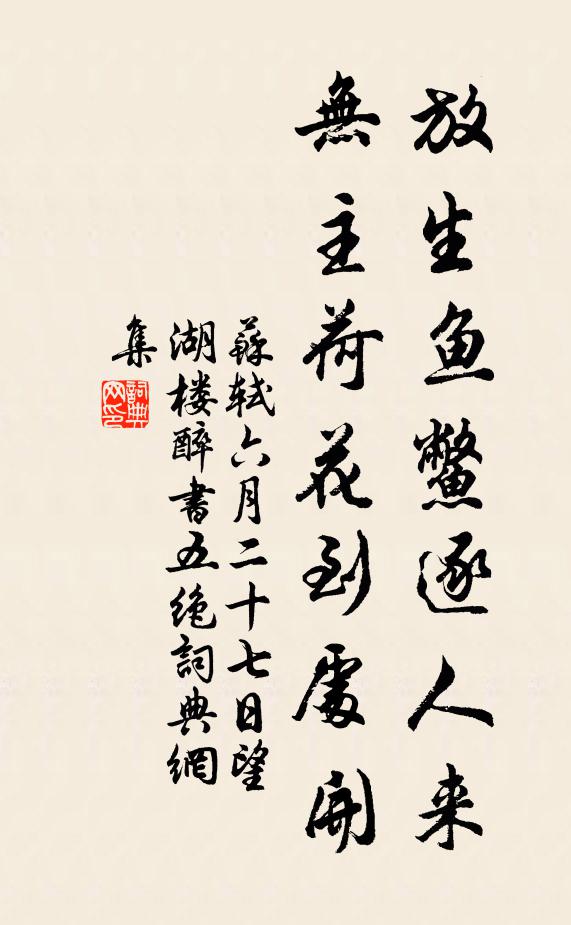 放生鱼鳖逐人来
無主荷花到處開
蘇軾六月二十七日望
湖楼醉書五绝詞典網
集
詞典网印